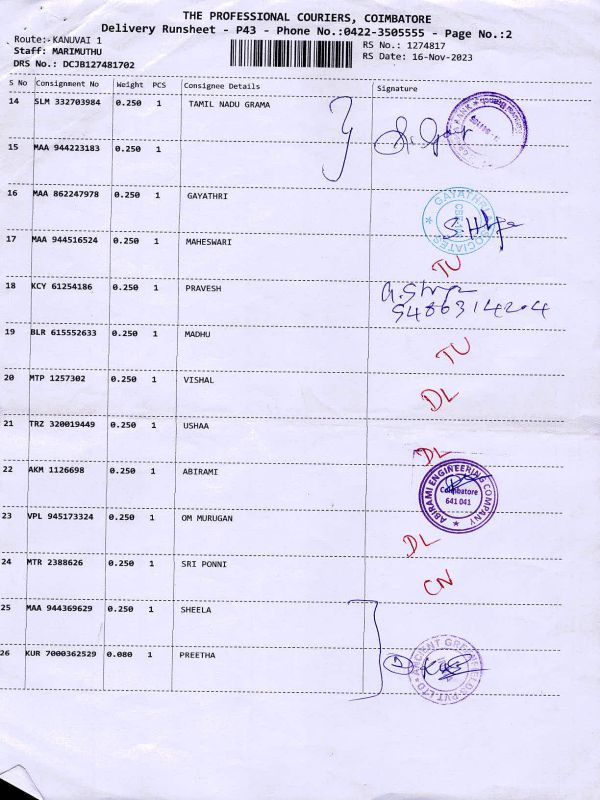 THE PROFESSIONAL COURIERS, COIMBATORE
Delivery Runsheet - P43 - Phone No.:0422-3505555 - Page No.:2
Route:- KANUVAI 1
Staff: MARIMUTHU
DRS No.: DCJB127481702
RS No.: 1274817
RS Date: 16-Nov-2023
S No Consignment No Weight PCS Consignee Details Signature
14 SLM 332703984 0.250 1 TAMIL NADU GRAMA
15 MAA 944223183 0.250 1
16 MAA 862247978 0.250 1 GAYATHRI
17 MAA 944516524 0.250 1 MAHESWARI TU
18 KCY 61254186 0.250 1 PRAVESH
19 BLR 615552633 0.250 1 MADHU TU
20 MTP 1257302 0.250 1 VISHAL DL
21 TRZ 320019449 0.250 1 USHAA DL
22 AKM 1126698 0.250 1 ABIRAMI
ABIRAMI ENGINEERING COMPANY
Coimbatore
641 041
23 VPL 945173324 0.250 1 OM MURUGAN DL
24 MTR 2388626 0.250 1 SRI PONNI CN
25 MAA 944369629 0.250 1 SHEELA
26 KUR 7000362529 0.080 1 PREETHA